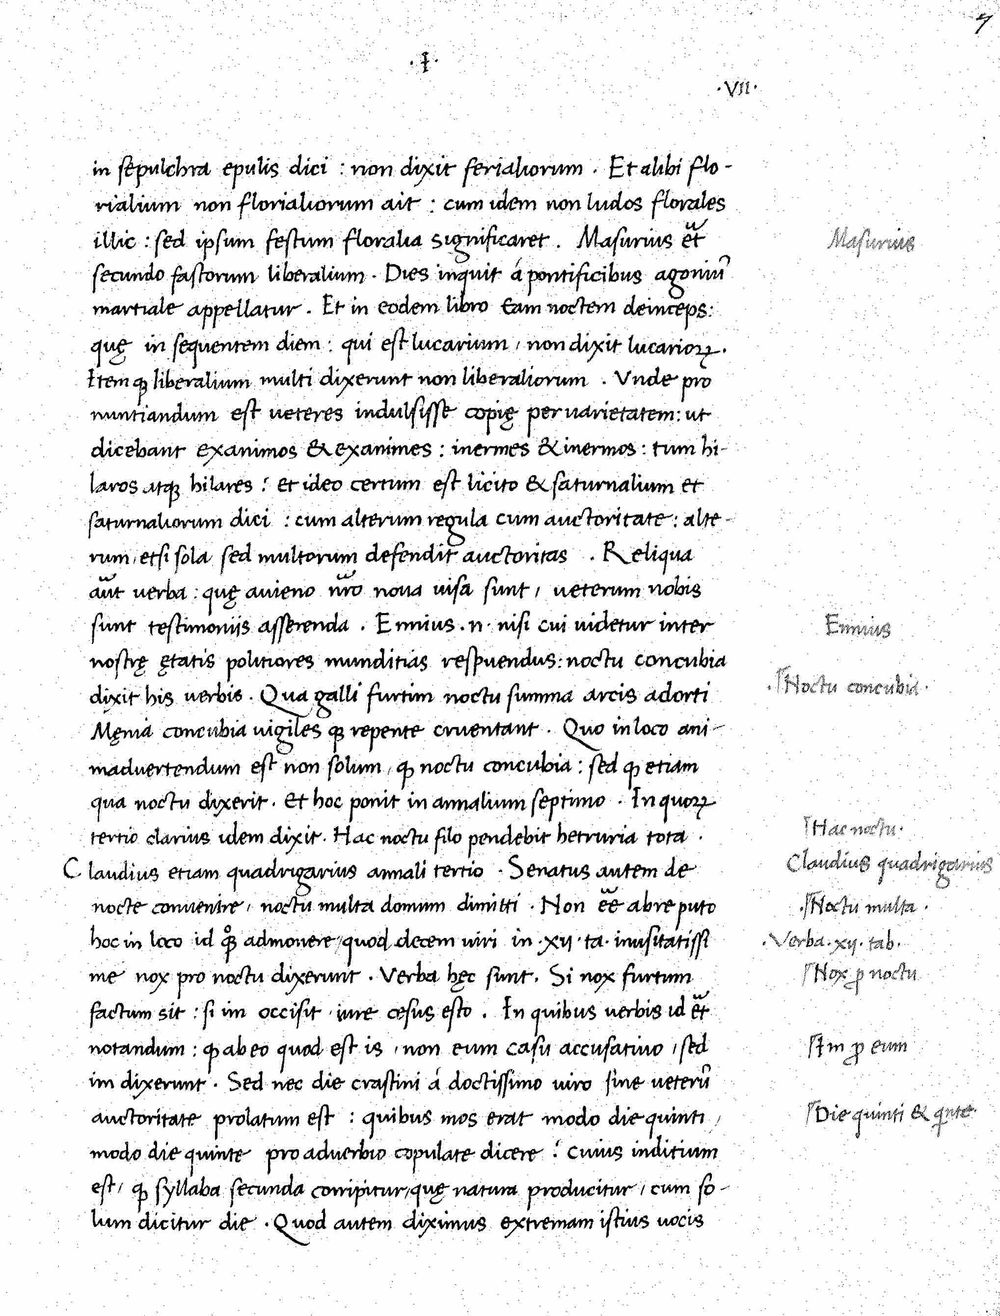 7
·I·
·VII·
in sepulchra epulis dici : non dixit ferialiorum . Et alibi flo-
rialium non florialiorum ait : cum idem non ludos florales
illic : sed ipsum festum floralia significaret . Masurius et̃
Masurius
secundo fastorum liberalium . Dies inquit á pontificibus agoniũ
martiale appellatur . Et in eodem libro Eam noctem deinceps :
quę in sequentem diem : qui est lucarium , non dixit lucarioꝝ .
Itemqꝫ liberalium multi dixerunt non liberaliorum . Vnde pro
nuntiandum est ueteres indulsisse copię per uarietatem : ut
dicebant exanimos & exanimes : inermes & inermos : tum hi-
laros atqꝫ hilares : et ideo certum est licito & saturnalium et
saturnaliorum dici : cum alterum regula cum auctoritate : alte-
rum , etsi sola sed multorum defendit auctoritas . Reliqua
aũt uerba : quę auieno nr̃o noua uisa sunt , ueterum nobis
sunt testimoniis asserenda . Ennius .n. nisi cui uidetur inter
Ennius
nostrę ętatis politiores munditias respuendus : noctu concubia
dixit his uerbis . Qua galli furtim noctu summa arcis adorti
Noctu concubia .
Męnia concubia uigilesqꝫ repente cruentant . Quo in loco ani-
maduertendum est non solum , ꝙ noctu concubia : sed ꝙ etiam
qua noctu dixerit . Et hoc ponit in annalium septimo . In quoꝝ
tertio clarius idem dixit . Hac noctu filo pendebit hetruria tota .
Hac noctu .
Claudius etiam quadrigarius annali tertio . Senatus autem de
Claudius quadrigarius
nocte conuenire , noctu multa domum dimitti . Non ẽe ab re puto
Noctu multa .
hoc in loco id qꝫ admonere , quod decem uiri in .xij. ta. inusitatissi
.Verba .xij. tab.
me nox pro noctu dixerunt . Verba hęc sunt . Si nox furtum
Nox ꝓ noctu
factum sit : si im occisit , iure cesus esto . In quibus uerbis id et̃
notandum : ꝙ ab eo quod est is , non eum casu accusatiuo , sed
Im ꝓ eum
im dixerunt . Sed nec die crastini á doctissimo uiro sine ueterũ
auctoritate prolatum est : quibus mos erat modo die quinti ,
Die quinti & qinte
modo die quinte pro aduerbio copulate dicere : cuius inditium
est , ꝙ syllaba secunda corripitur , quę natura producitur , cum so-
lum dicitur die . Quod autem diximus extremam istius uocis